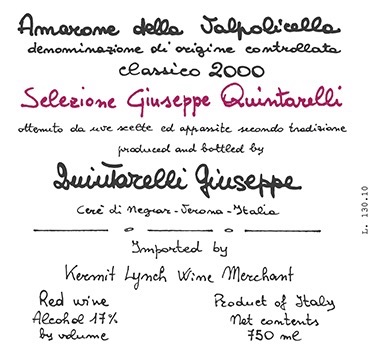 Amarone della Valpolicella
denominazione di origine controllata
classico 2000
Selezione Giuseppe Quintarelli
ottenuto da uve scelte ed appassite secondo tradizione
produced and bottled by
Quintarelli Giuseppe
Cerè di Negrar - Verona - Italia
Imported by
Kermit Lynch Wine Merchant
Red wine
Alcohol 17%
by volume
Product of Italy
Net contents
750 ml
L. 130.10